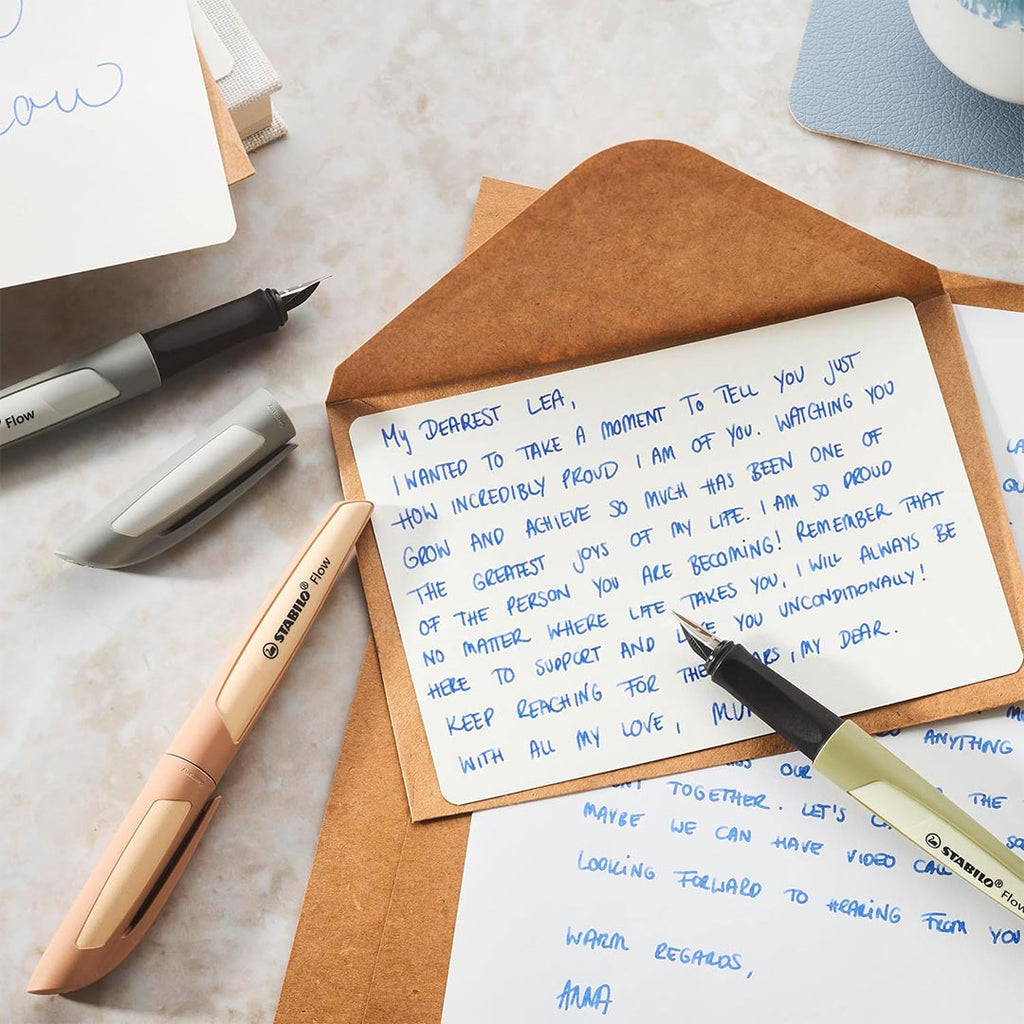 My DEAREST LEA,
I WANTED TO TAKE A MOMENT TO TELL YOU JUST
HOW INCREDIBLY PROUD I AM OF YOU. WATCHING YOU
GROW AND ACHIEVE SO MUCH HAS BEEN ONE OF
THE GREATEST JOYS OF MY LIFE. I AM SO PROUD
OF THE PERSON YOU ARE BECOMING! REMEMBER THAT
NO MATTER WHERE LIFE TAKES YOU, I WILL ALWAYS BE
HERE TO SUPPORT AND YOU UNCONDITIONALLY!
KEEP REACHING FOR THE , MY DEAR.
WITH ALL MY LOVE,
Flow
STABILO® Flow
STABILO® Flow
ANYTHING
OUR
TOGETHER. LET'S THE
MAYBE WE CAN HAVE VIDEO
LOOKING FORWARD TO HEARING FROM YOU
WARM REGARDS,
ANNA